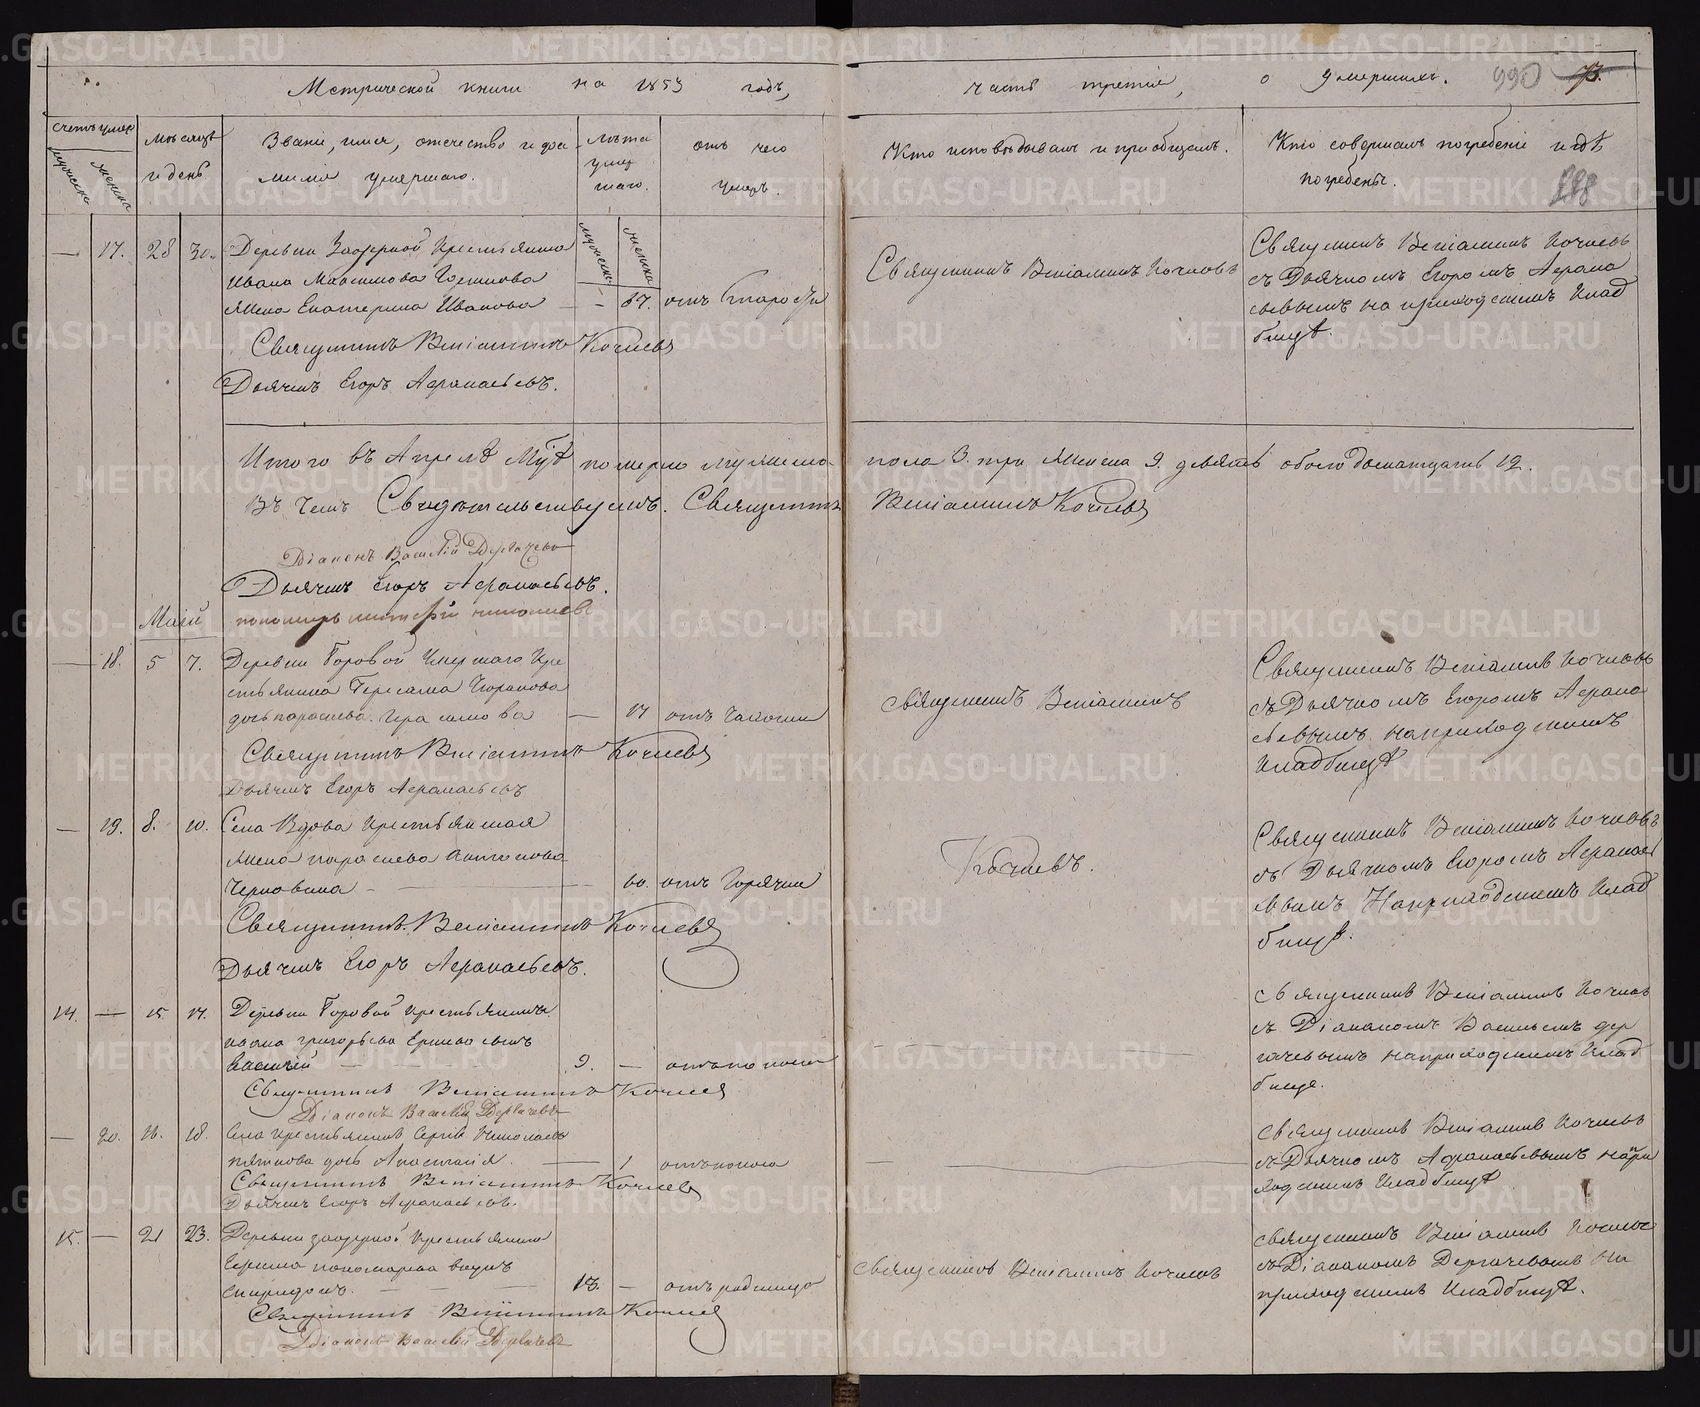 Метрической книги на 1853 годъ,
часть третія, о умершихъ. 990
Счетъ умер
мужеска
женска
Мѣсяцъ
и день
Званіе, имя, отечество и фа-
милія умершаго.
Лѣта
умер
шаго.
отъ чего
умеръ.
Кто исповѣдывалъ и пріобщалъ.
Кто совершалъ погребеніе и гдѣ
погребены.
мужеска
женска
— 17. 28 30. Деревни Заозерной Крестьянина
Ивана Максимова
жена Екатерина Иванова — 67. отъ старости
Священникъ Веніаминъ Кочневъ
Дьячекъ Егоръ Афанасьевъ.
Священникъ Веніаминъ Кочневъ
Священникъ Веніаминъ Кочневъ
съ Дьячкомъ Егоромъ Афана
сьевымъ на приходскомъ клад
бищѣ.
Итого въ Апрелѣ М-цѣ померло мужеска пола 3. три женска 9. девять обоего двенатцать 12.
Въ чемъ Свидѣтельствуемъ. Священникъ Веніаминъ Кочневъ
Діаконъ Василій Дергачевъ
Дьячекъ Егоръ Афанасьевъ.
Май
— 18. 5 7. Деревни Боровой Умершаго Кре
стьянина
дочь парасковья — 17 отъ чахотки
Священникъ Веніаминъ Кочневъ
Дьячекъ Егоръ Афанасьевъ
священникъ Веніаминъ
Священникъ Веніаминъ Кочневъ
съ Дьячкомъ Егоромъ Афана
сьевымъ на приходскомъ
кладбищѣ
— 19. 8. 10. Села Вдова крестьянская
жена Антонова
— 60. отъ горячки
Священникъ Веніаминъ Кочневъ
Дьячекъ Егоръ Афанасьевъ.
Кочневъ.
Священникъ Веніаминъ Кочневъ
съ Дьячкомъ Егоромъ Афанась
евымъ на приходскомъ клад
бищѣ.
14. — 15. 17. Деревни Боровой крестьянина
ивана григорьева сынъ
Василій 9. — отъ поноса
Священникъ Веніаминъ Кочневъ
Діаконъ Василій Дергачевъ
священникъ Веніаминъ Кочневъ
съ Діакономъ Васильемъ дер
гачевымъ на приходскомъ клад
бище.
— 20. 16. 18. Села крестьянина Сергія Николаева
дочь Анастасія — 1 отъ поноса
Священникъ Веніаминъ Кочневъ
Дьячекъ Егоръ Афанасьевъ.
священникъ Веніаминъ Кочневъ
съ Дьячкомъ Афанасьевымъ на при
ходскомъ кладбищѣ
15. — 21 23. Деревни заозерной крестьянина
пономарева внукъ
Спиридонъ. — отъ родимца
Священникъ Веніаминъ Кочневъ
Діаконъ Василій Дергачевъ
священникъ Веніаминъ Кочневъ
священникъ Веніаминъ Кочневъ
съ Діакономъ Дергачевымъ на
приходскомъ кладбищѣ.
METRIKI.GASO-URAL.RU